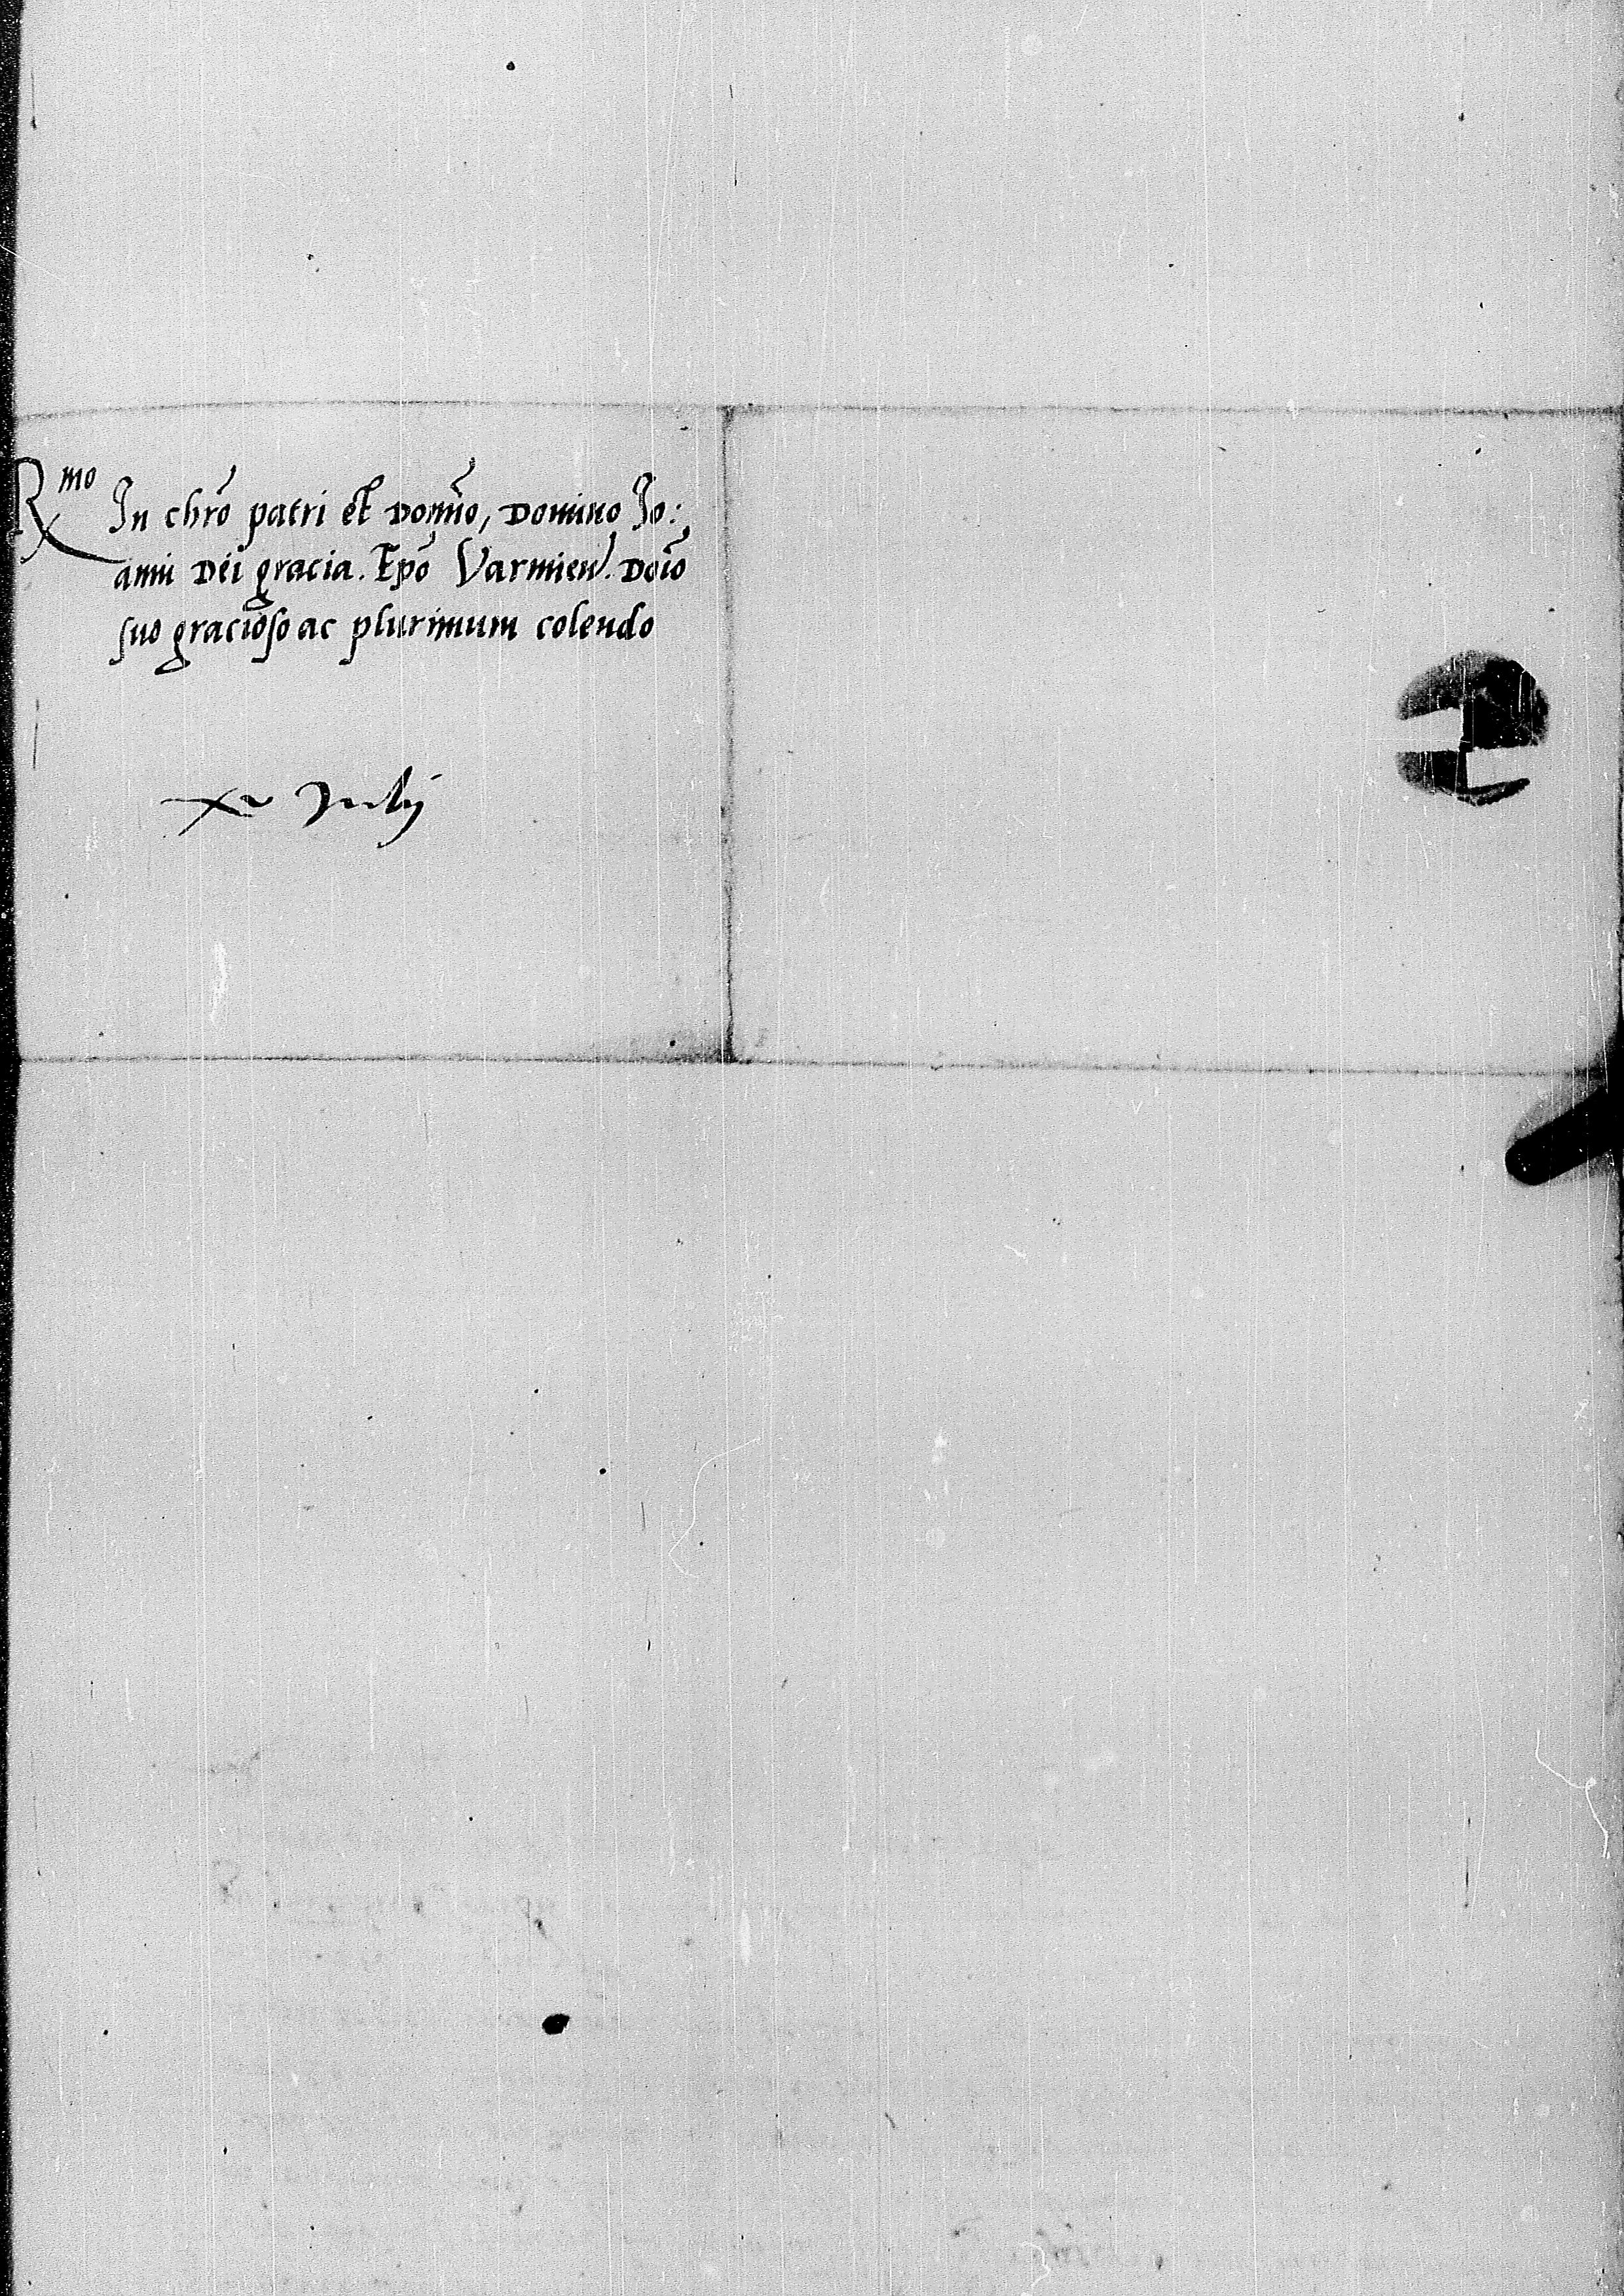 Rmo In chro patri et Domno, Domino Jo:
anni Dei gracia. Epo Varmien. Doio
suo gracioso ac plurimum colendo
xv Julij